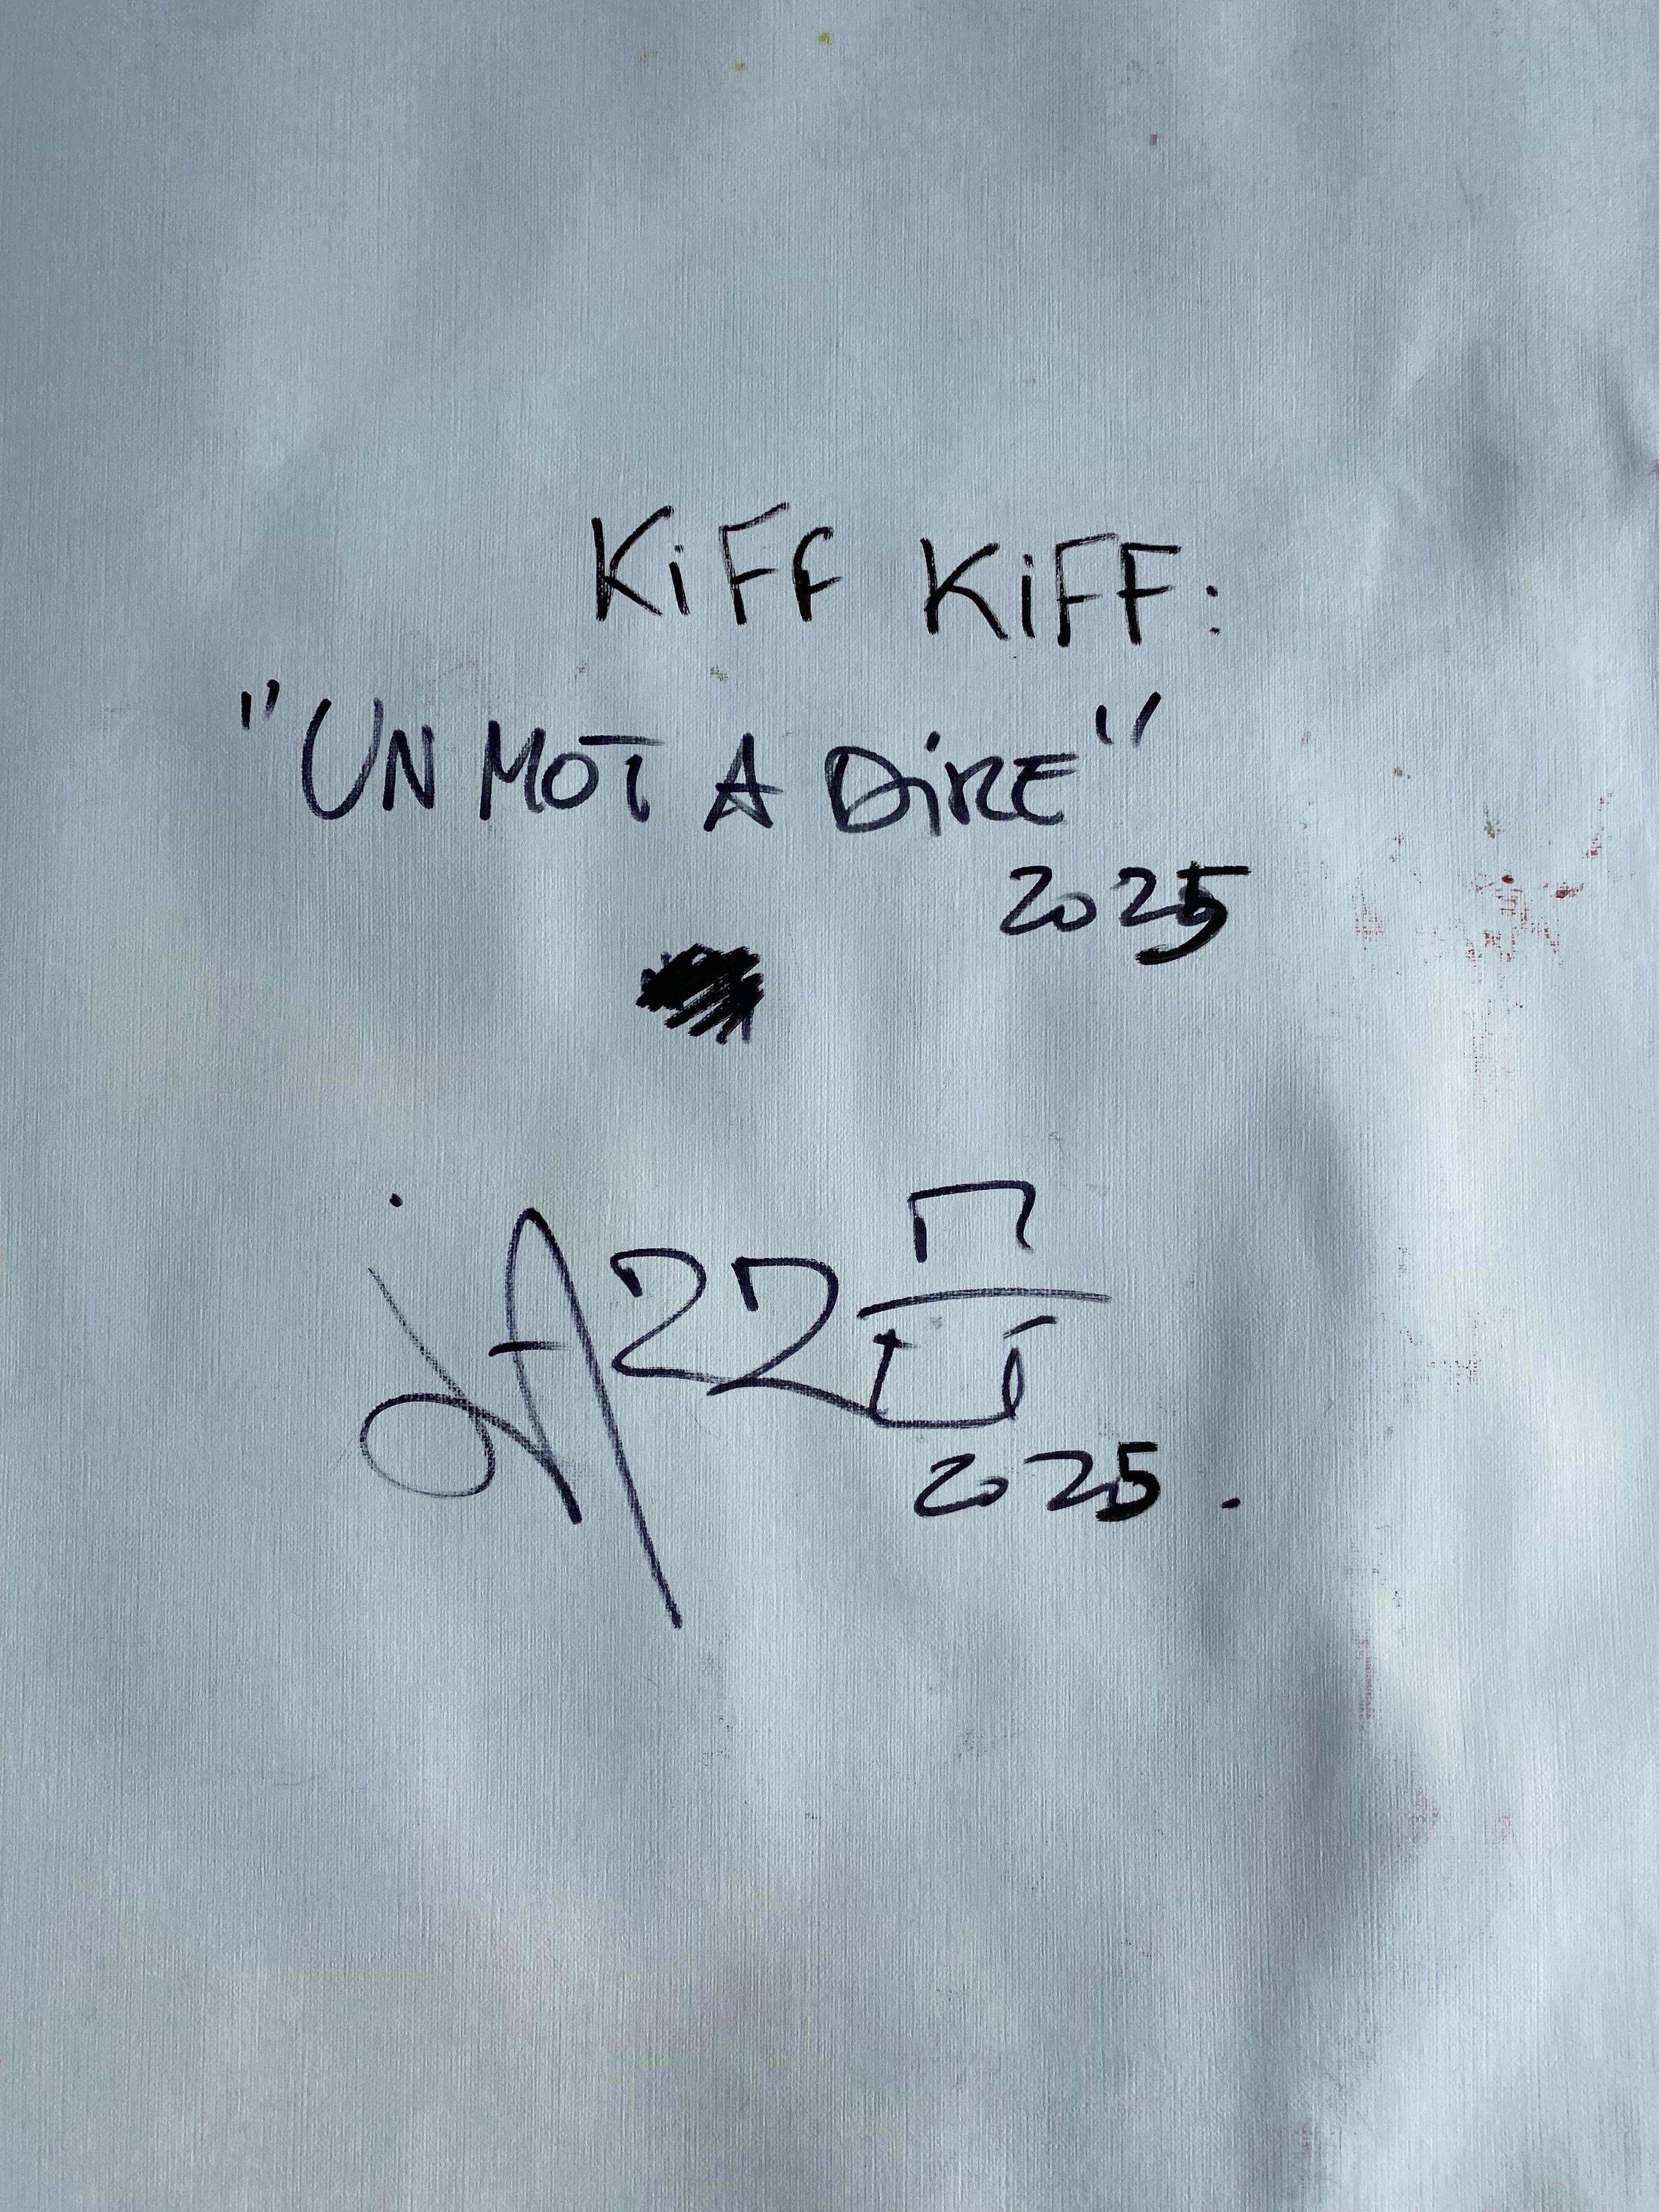 KiFF KiFF:
"UN MOT A DiRE"
2025
2025.